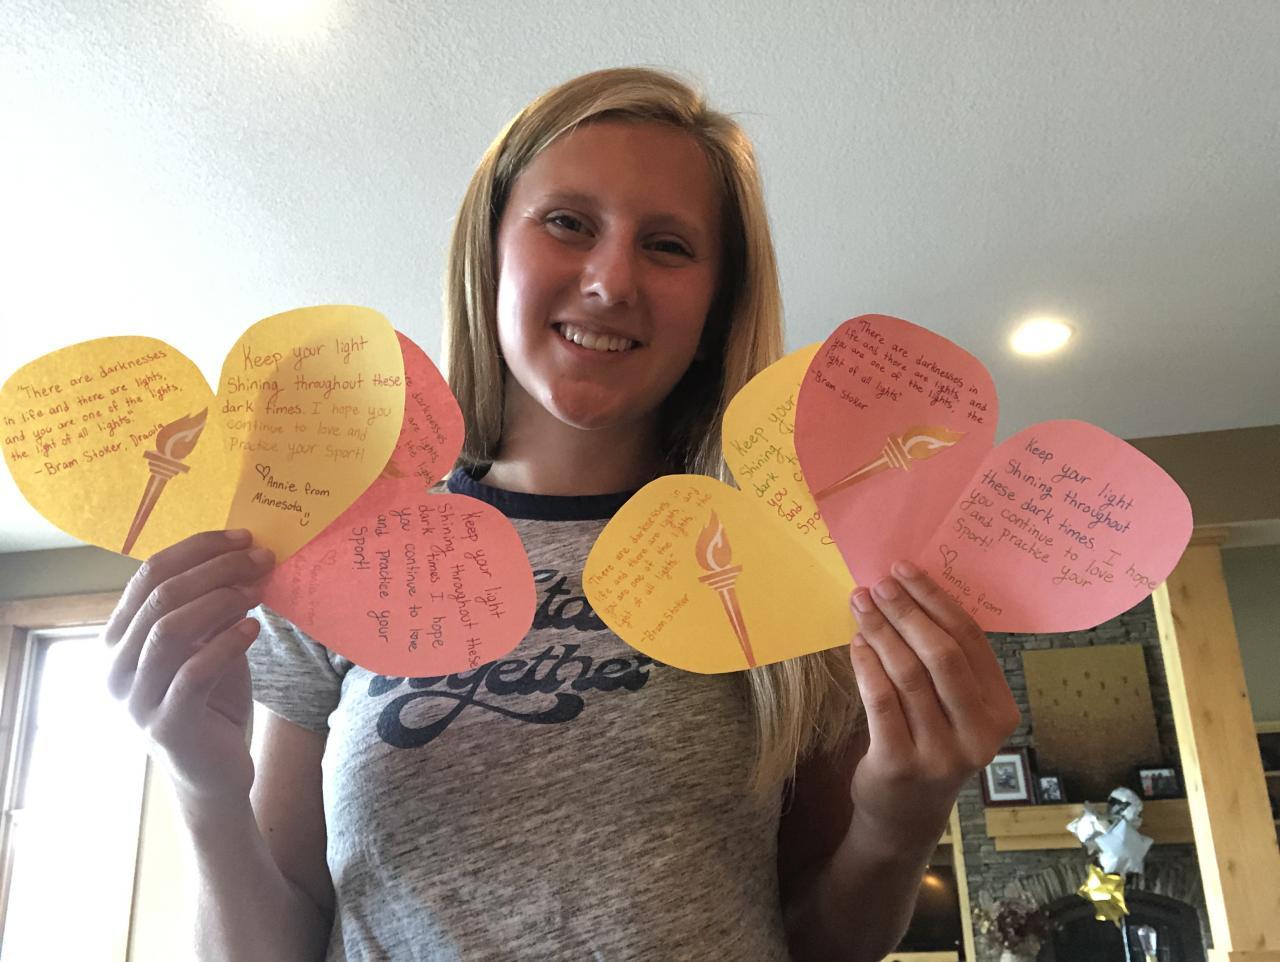 "There are darknesses
in life and there are lights,
and you are one of the lights,
the light of all lights."
-Bram Stoker, Dracula
Keep your light
Shining throughout these
dark times. I hope you
continue to love and
practice your sport!
♡Annie from
Minnesota
darknesses
are lights,
the lights
Keep your light
Shining throughout these
dark times I hope
you continue to love
and practice your
Sport!
together
"There are darknesses in
life and there are lights and
you are one of the lights the
light of all lights"
-Bram Stoker
Keep your
Shining
dark
you
and
"There are darknesses in
life and there are lights, and
you are one of the lights, the
light of all lights"
-Bram Stoker
Keep your light
Shining throughout
these dark times. I hope
you continue to love
and practice your
Sport!
♡Annie from